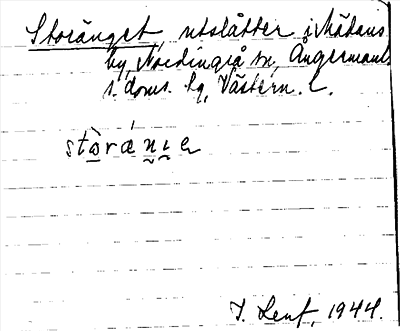 Storänget, utslåtter i Mädans
by, Nordingrå sn, Ångermanl.
s. doms. hg, Västern. l.
stòrǽn̰ḭe
J. Lenf, 1944.